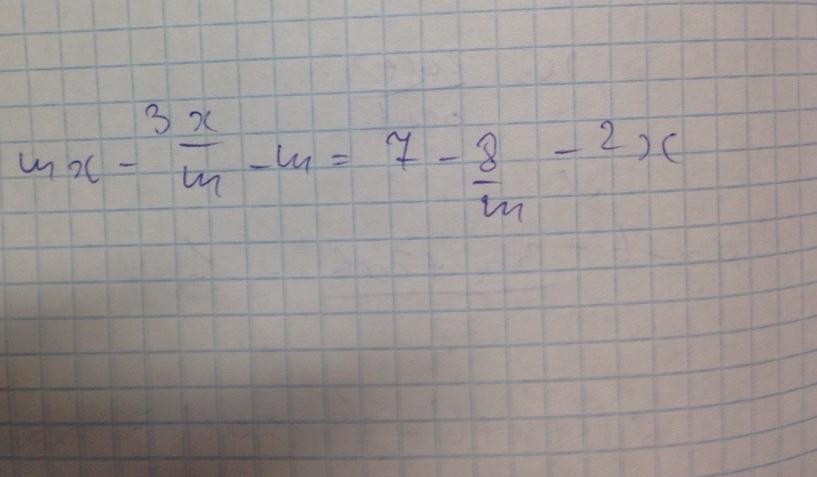 mx - 3 x/m - m = 7 - 8/m - 2x